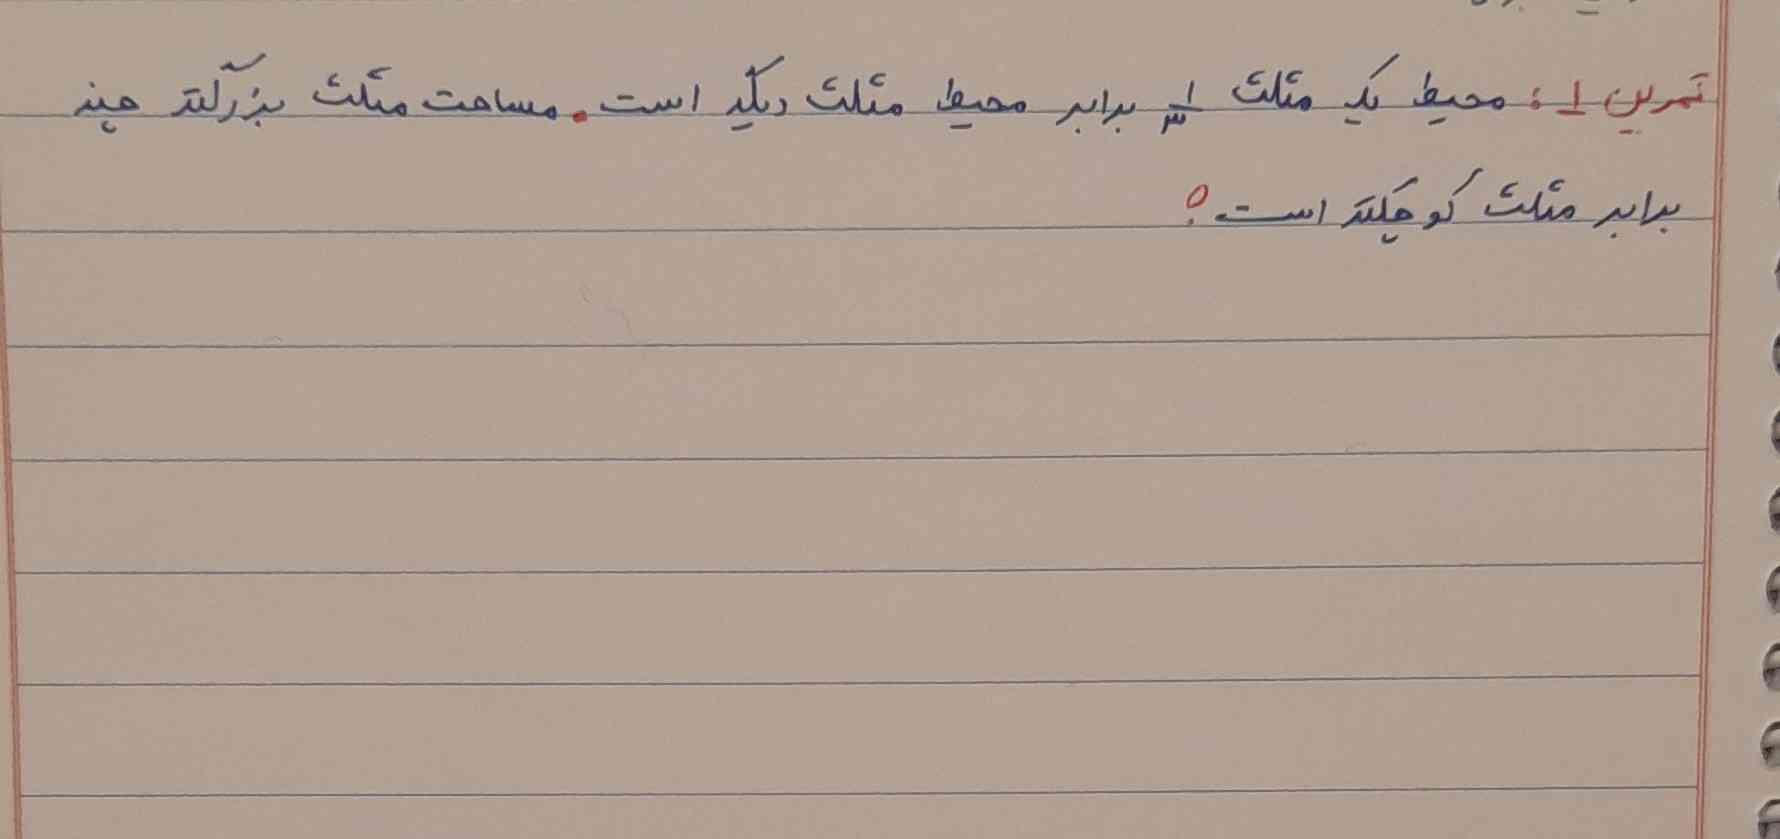 تمرین ۱: محیط یک مثلث ۱/۳ برابر محیط مثلث دیگر است. مساحت مثلث بزرگتر چند
برابر مثلث کوچکتر است؟